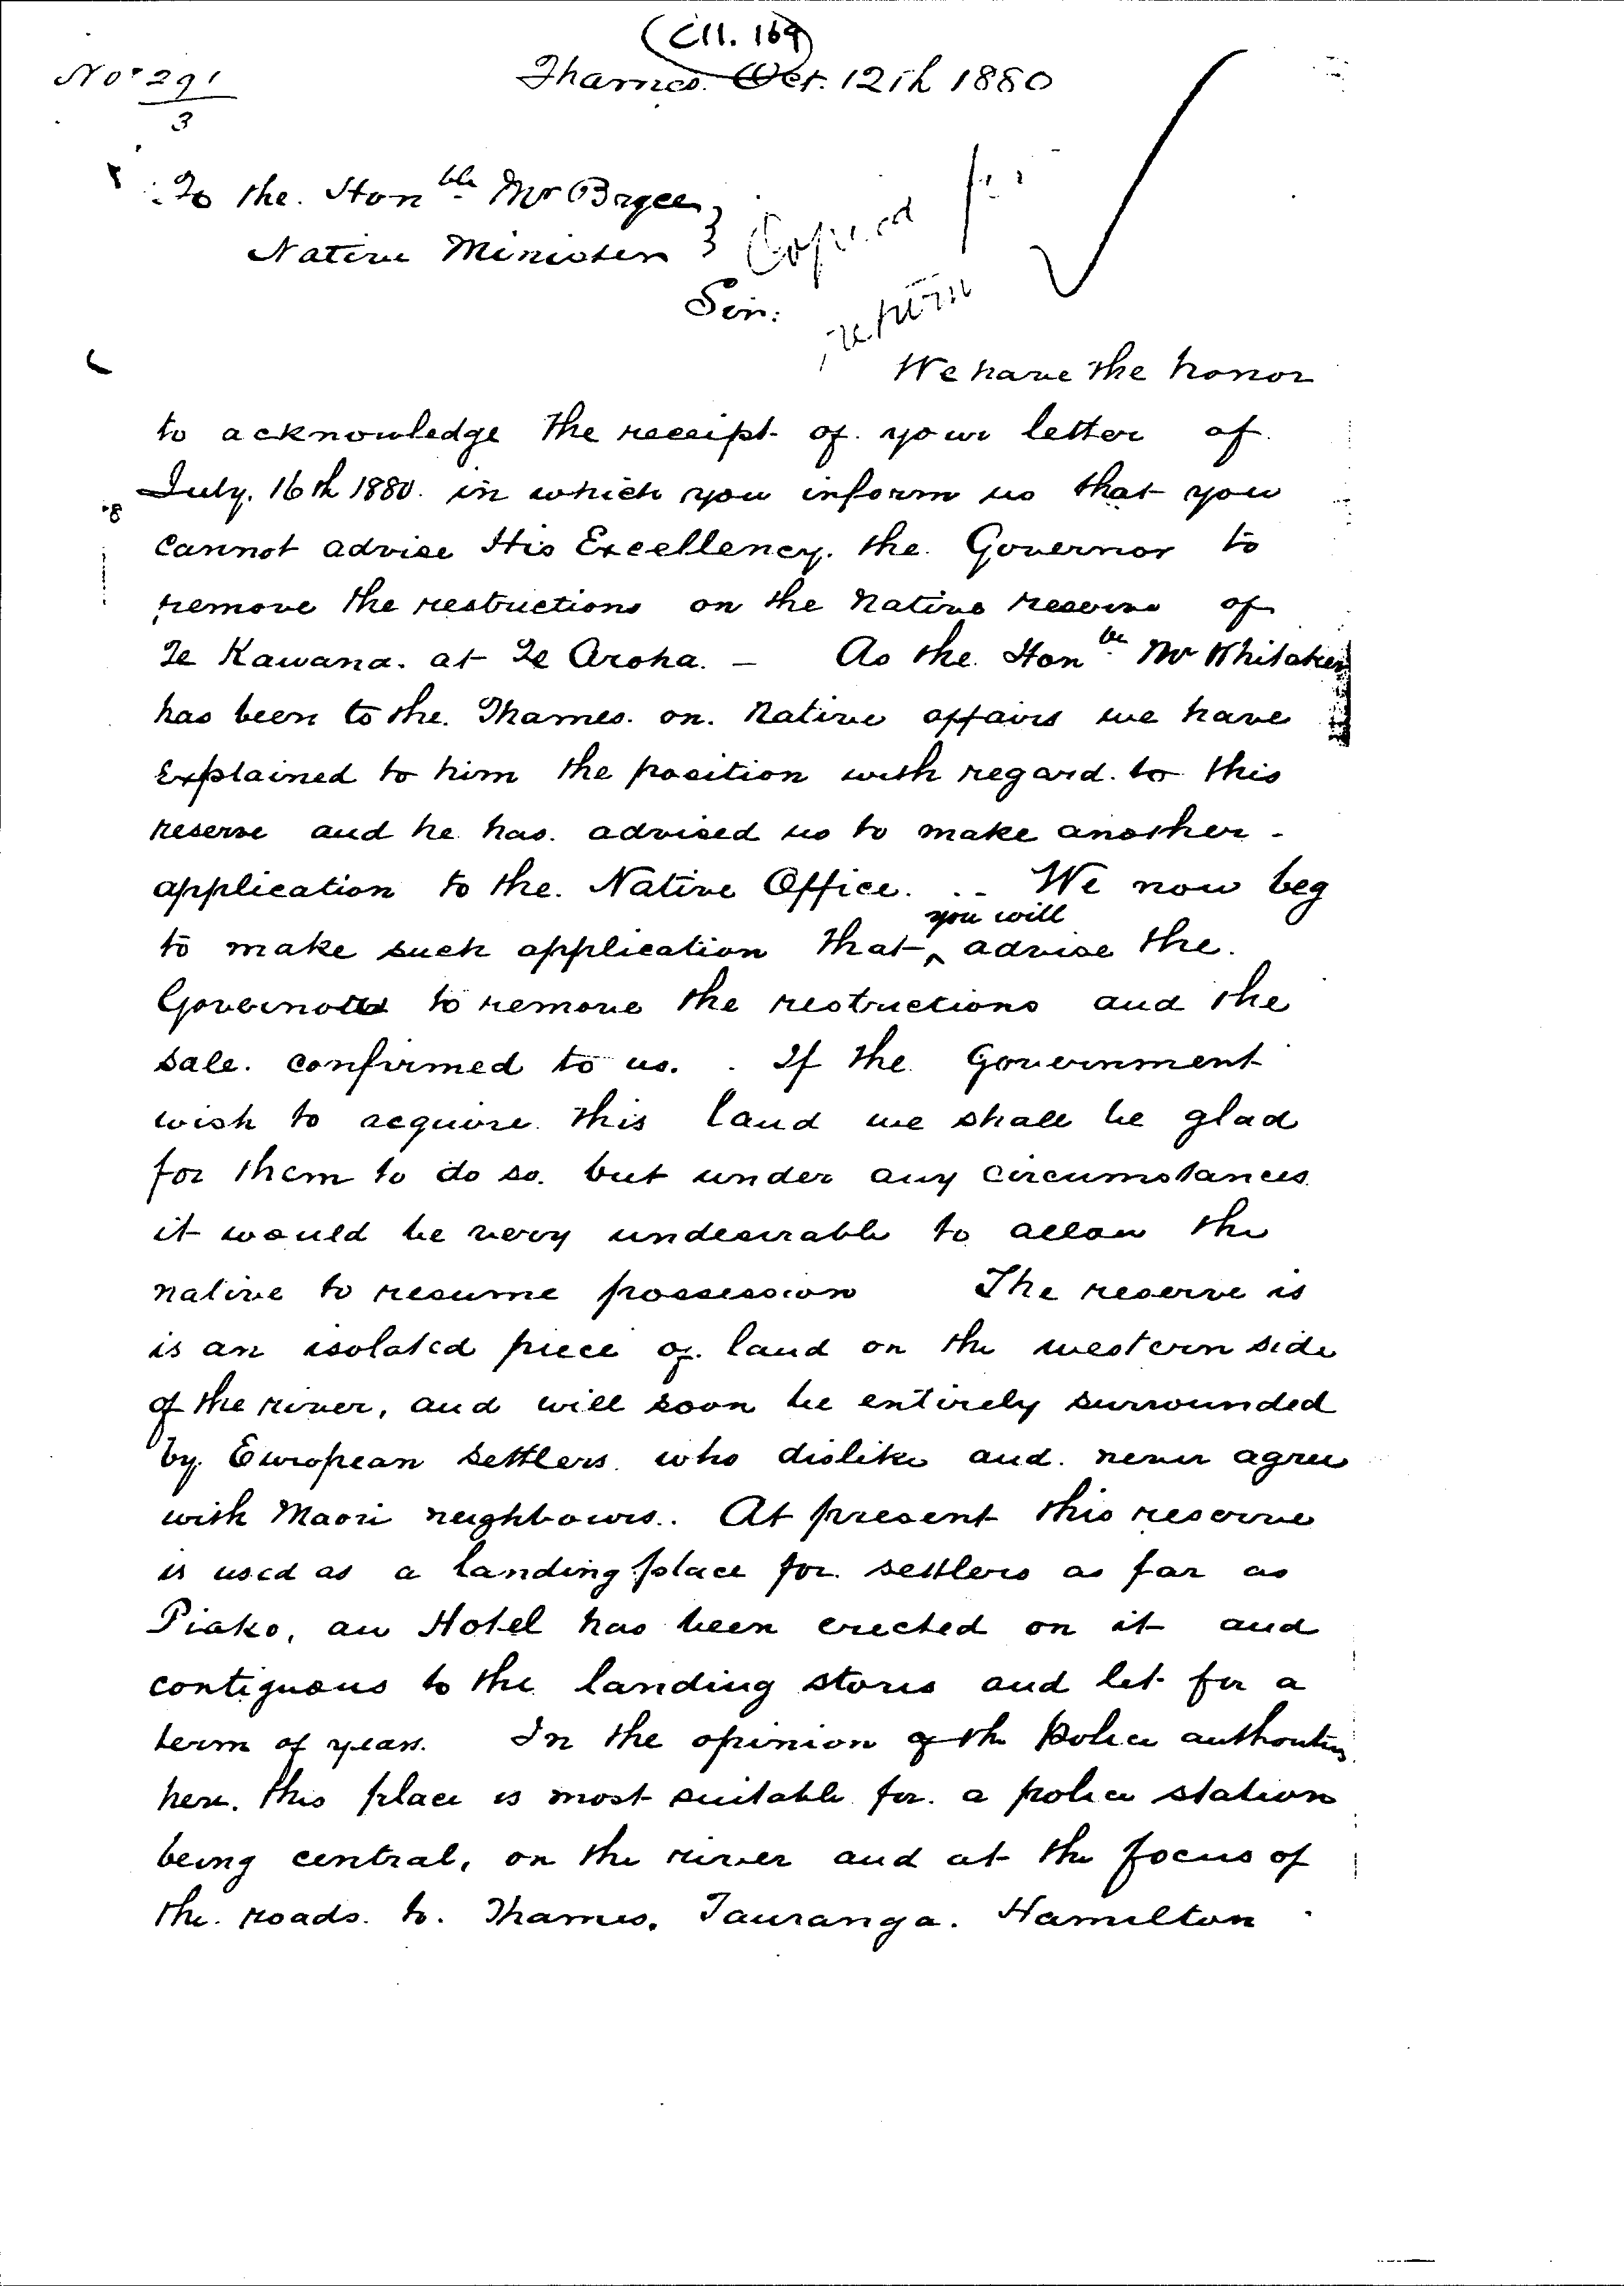 C11. 169
No. 291
3
Thames. Oct. 12th 1880
To the. Honble Mr Bryce
Native Minister
Copied for
return
Sir:
We have the honor
to acknowledge the receipt of. your letter of
July. 16th 1880. in which you inform us that you
cannot advise His Excellency. the. Governor to
remove the restrictions on the native reserve of
Te Kawana. at Te Aroha. — As the. Honble Mr Whitaker
has been to the. Thames. on. native affairs we have
explained to him the position with regard. to this
reserve and he has. advised us to make another -
application to the. Native Office. .. We now beg
to make such application that ^ you will advise the.
Governor to remove the restrictions and the
sale. confirmed to us. . If the. Government
wish to acquire. this land we shall be glad
for them to do so. but under any circumstances.
it would be very undesirable to allow the
native to resume possession The reserve is
is an isolated piece of. land on the western side
of the river, and will soon be entirely surrounded
by. European settlers. who dislike and. never agree
with Maori neighbours.. At present this reserve
is used as a landing place for. settlers as far as
Piako, an Hotel has been erected on it and
contiguous to the landing stores and let for a
term of years. In the opinion of the Police authorities
here. this place is most suitable for. a police station
being central, on the river and at the focus of
the. roads. to. Thames. Tauranga. Hamilton